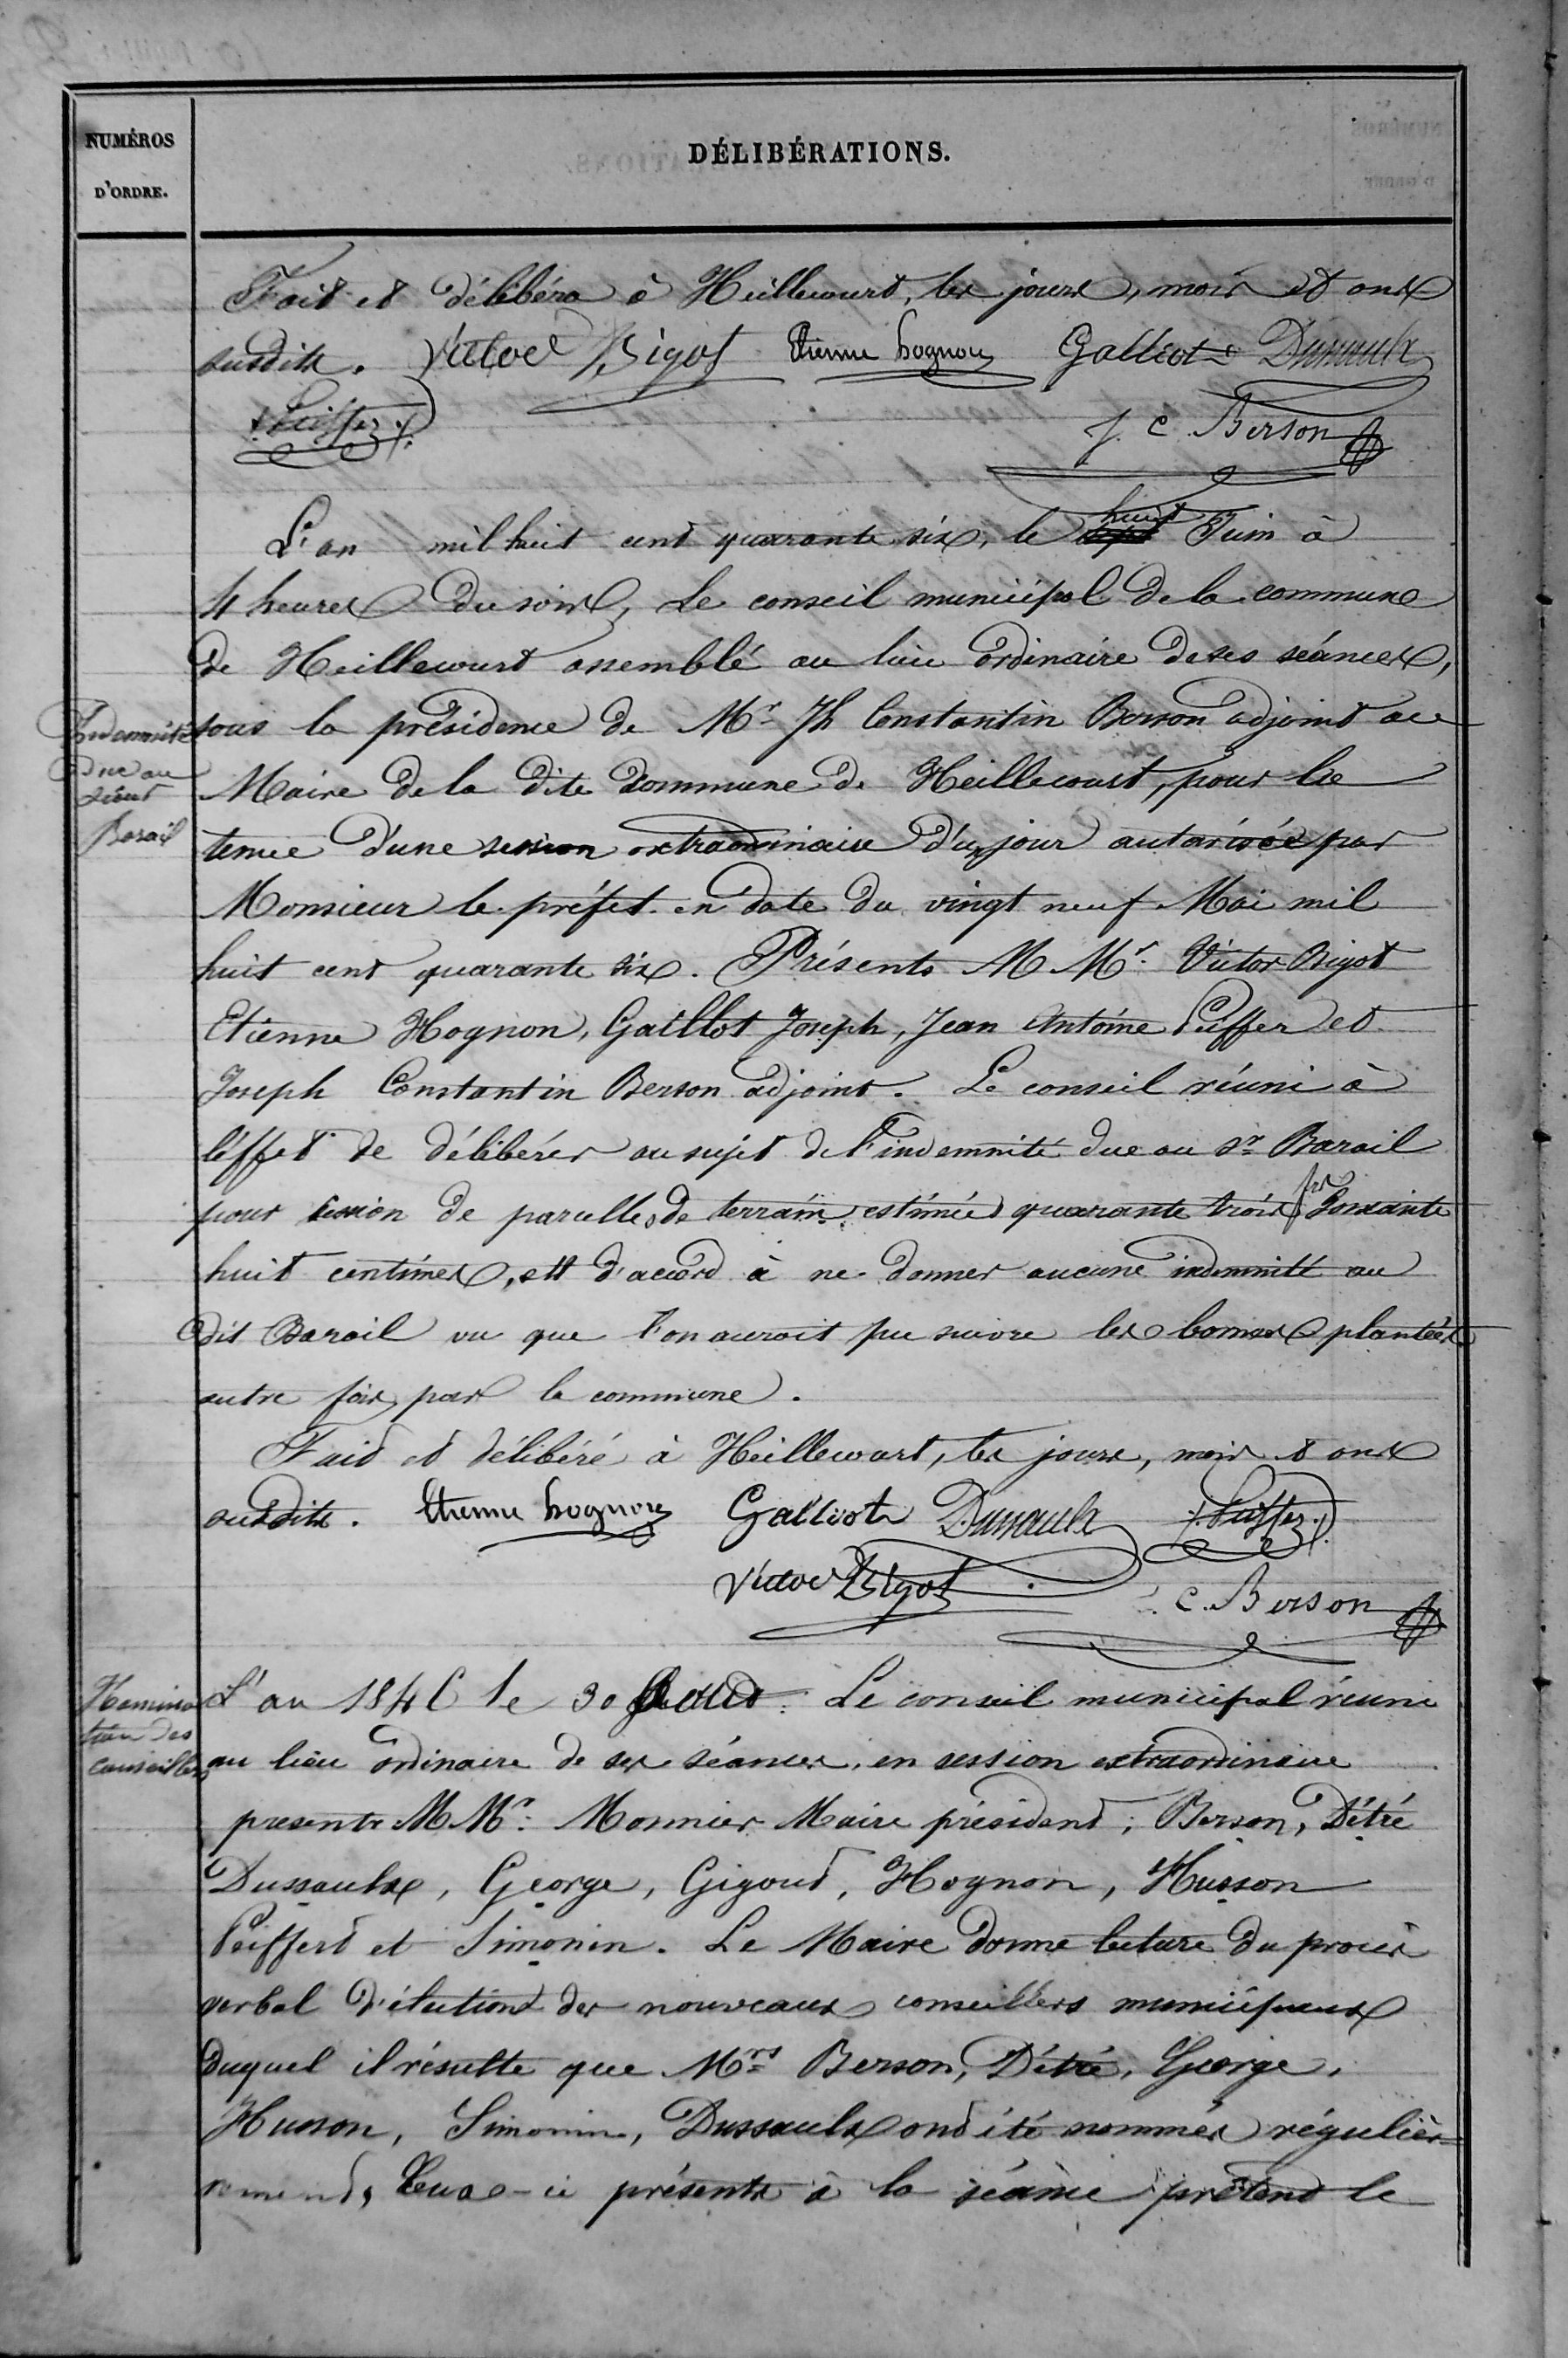 NUMÉROS
D'ORDRE.
DÉLIBÉRATIONS.
Fait et délibéré à Heillecourt, les jours, mois et ans
susdits. Victor Bigot Etienne hognon Galliot Dussaulx
Peiffer J. C. Berson
L'an mil huit cent quarante six, le sept huit Juin à
4 heures du soir, Le conseil municipal de la commune
de Heillecourt assemblé au lieu ordinaire de ses séances,
Indemnité
due au
sieur
Barail
sous la présidence de Mr Jh Constantin Berson adjoint au
Maire de la dite Commune de Heillecourt, pour la
tenue d'une session extraordinaire d'un jour autorisée par
Monsieur le préfet en date du vingt neuf Mai mil
huit cent quarante six. Présents M Mr Victor Bigot
Etienne Hognon, Gaillot Joseph, Jean Antoine Peiffer et
Joseph Constantin Berson adjoint. Le conseil réuni à
l'éffet de délibérer au sujet de l'indemnité due au Sr Barail
pour cession de parcelles de terrain estimée quarante trois frs soixante
huit centimes, est d'accord à ne donner aucune indemnité au
dit Barail vu que l'on auroit pu suivre les bornes plantées
autre fois par la commune.
Fait et délibéré à Heillecourt, les jours, mois & ans
susdits. Etienne hognon Galliot Dussaulx Peiffer
Victor Bigot C. Berson
Nomina
tion des
conseillers
L'an 1846 le 30 Aout. Le conseil municipal réuni
au lieu ordinaire de ses séances, en session extraordinaire
presents M Mr: Monnier Maire président; Berson, Détré
Dussaulx, George, Gigout, Hognon, Husson
Peiffert et Simonin. Le Maire donne lecture du procès
verbal d'élection des nouveaux conseillers municipaux
duquel il résulte que Mrs Berson, Détré, George,
Husson, Simonin, Dussaulx ont été nommés régulièr=
rement, Ceux-ci présents à la séance prêtent le